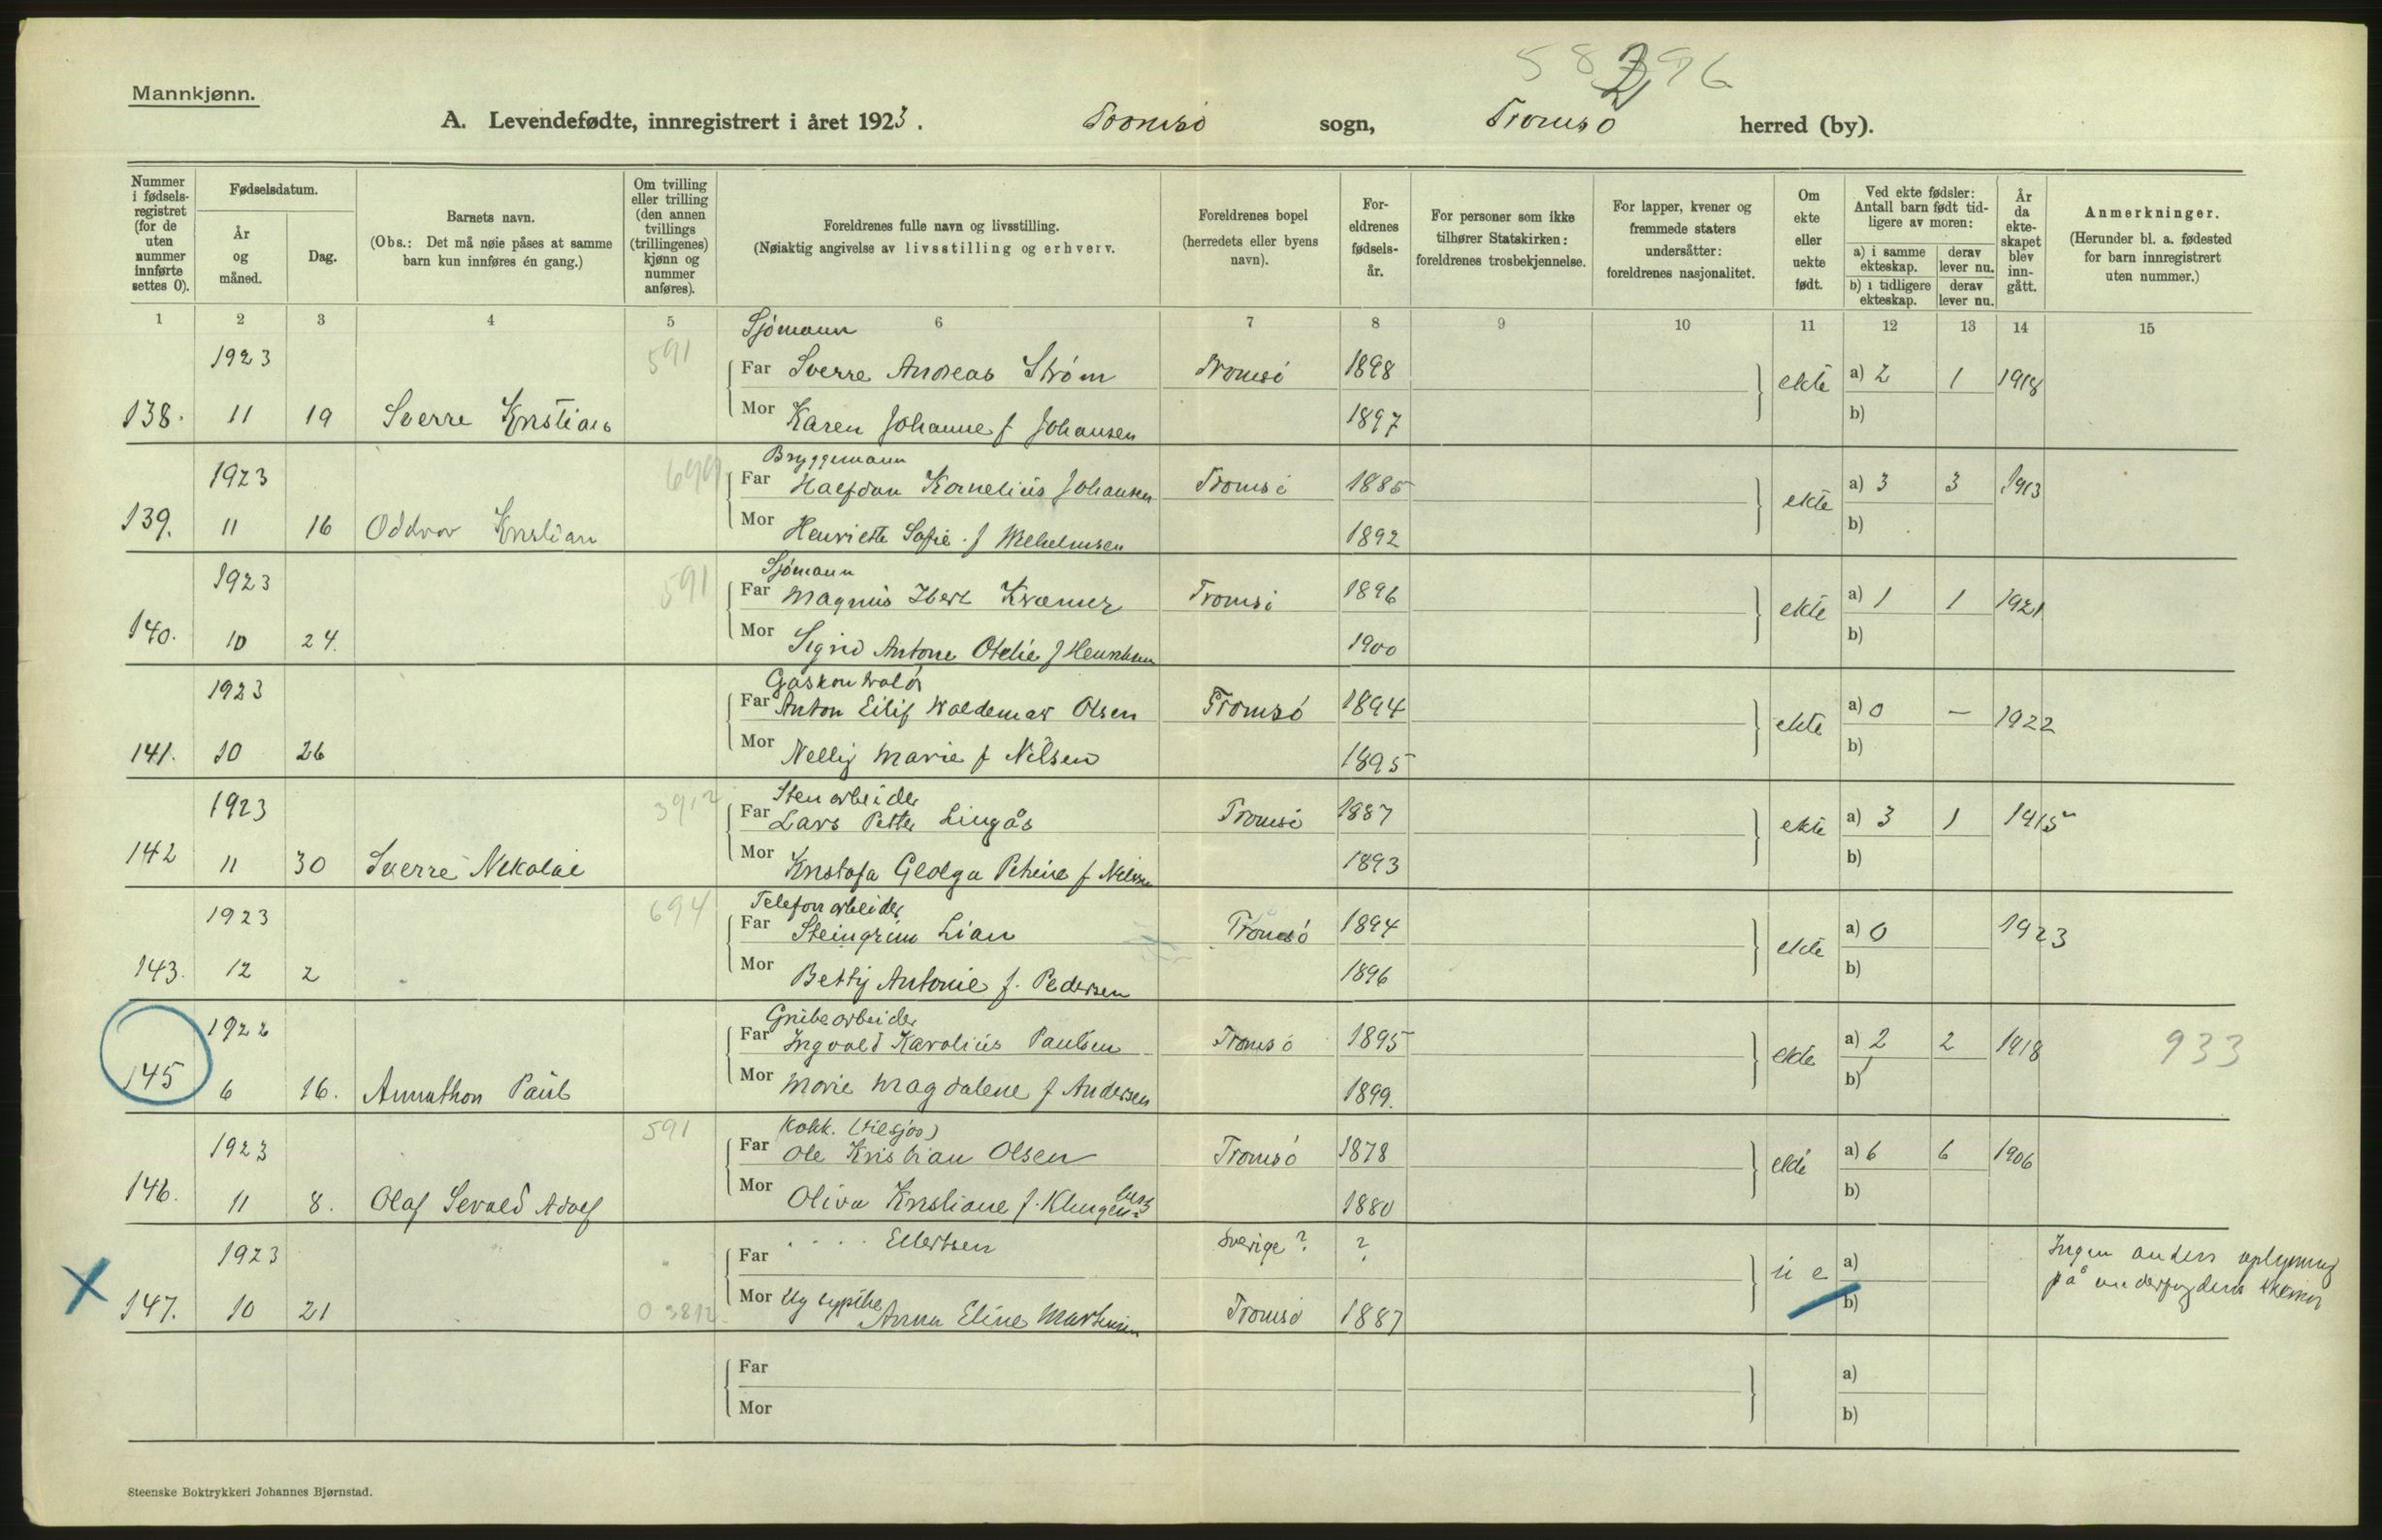 58 2 96
Mannkjønn.
A. Levendefødte, innregistrert i året 1923. Tromsö sogn, Tromsö herred (by).
Nummer i fødsels-registret (for de uten nummer innførte settes 0).
Fødselsdatum.
År og måned.
Dag.
Barnets navn.
(Obs.: Det må nøie påses at samme barn kun innføres én gang.)
Om tvilling eller trilling (den annen tvillings (trillingenes) kjønn og nummer anføres).
Foreldrenes fulle navn og livsstilling.
(Nøiaktig angivelse av livsstilling og erhverv.
Foreldrenes bopel (herredets eller byens navn).
For-eldrenes fødsels-år.
For personer som ikke tilhører Statskirken: foreldrenes trosbekjennelse.
For lapper, kvener og fremmede staters undersåtter: foreldrenes nasjonalitet.
Om ekte eller uekte født.
Ved ekte fødsler: Antall barn født tid-ligere av moren:
a) i samme ekteskap. derav lever nu.
b) i tidligere ekteskap. derav lever nu.
År da ekte-skapet blev inn-gått.
Anmerkninger.
(Herunder bl. a. fødested for barn innregistrert uten nummer.)
1 2 3 4 5 6 7 8 9 10 11 12 13 14 15
Sjömann
1923 591 Far Sverre Andreas Ström Tromsö 1898 ekte a) 2 1 1918
138. 11 19 Sverre Kristian Mor Karen Johanne f Johansen 1897 b)
Bryggemann
1923 699 Far Halfdan Kornelius Johansen Tromsö 1885 ekte a) 3 3 1913
139. 11 16 Oddvar Kristian Mor Henriette Sofie f Wilhelmsen 1892 b)
Sjömann
1923 591 Far Magnus Kræmer Tromsö 1896 ekte a) 1 1 1921
140. 10 24. Mor Sigrid Antone Otelie f 1900 b)
Gaskontrolör
1923 Far Anton Eilif Waldemar Olsen Tromsö 1894 ekte a) 0 — 1922
141. 10 26 Mor Nelly Marie f Nilsen 1895 b)
Stenarbeider
1923 3912 Far Lars Petter Lingås Tromsö 1887 ekte a) 3 1 1915
142 11 30 Sverre Nikolai Mor Kristofa Georga Petrine f Nilsen 1893 b)
Telefonarbeider
1923 694 Far Steingrim Lian Tromsö 1894 ekte a) 0 1923
143. 12 2 Mor Betty Antonie f. Pedersen 1896 b)
Grubearbeider
1922 Far Ingvald Karolius Paulsen Tromsö 1895 ekte a) 2 2 1918 933
145 6 16. Annathon Paul Mor Marie Magdalene f Andersen 1899. b)
Kokk. (tilsjøs)
1923 591 Far Ole Kristian Olsen Tromsö 1878 ekte a) 6 6 1906
146. 11 8. Olaf Sevald Adolf Mor Oliva Kristiane f. Klingenberg 1880 b)
1923 Far . . . . Ellertsen Sverige? ? u e a) Ingen anden oplysning
X 147. 10 21 0 3812 Mor Ug sypike Anna Eline Martinsen Tromsö 1887 b) på
Far a)
Mor b)
Steenske Boktrykkeri Johannes Bjørnstad.